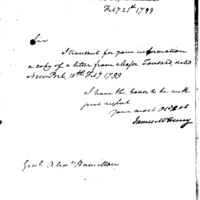 Feby 21st 1799
Sir
I transmit for your information
a copy of a letter from Major Tousard, dated
New York 18th Feby 1799
I have the honor to be with
great respect
your most
James McHenry
Genl Alexr Hamilton